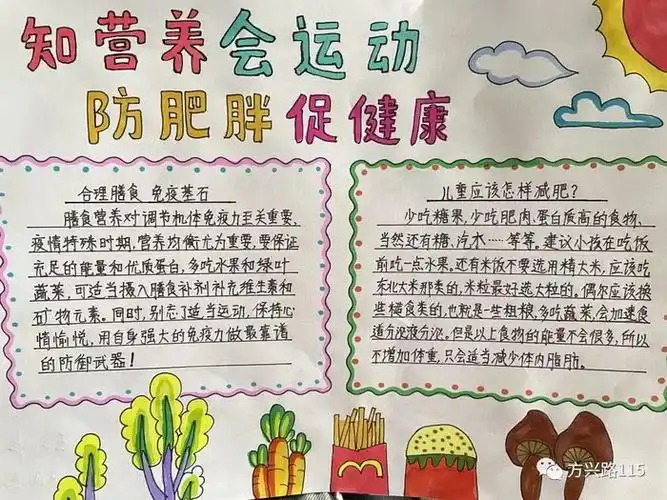 知营养会运动
防肥胖促健康
合理膳食 免疫基石
膳食营养对调节机体免疫力至关重要,
疫情特殊时期,营养均衡尤为重要,要保证
充足的能量和优质蛋白,多吃水果和绿叶
蔬菜,可适当摄入膳食补剂补充维生素和
矿物元素。同时,别忘了适当运动,保持心
情愉悦,用自身强大的免疫力做最靠谱
的防御武器!
儿童应该怎样减肥?
少吃糖果,少吃肥肉,蛋白质高的食物,
当然还有糖,汽水……等等。建议小孩在吃饭
前吃一点水果,还有米饭不要选用精大米,应该吃
东北大米那类的,米粒最好选大粒的。偶尔应该换
些糙食类的,也就是一些粗粮,多吃蔬菜,会加速食
道分泌液分泌。但是以上食物的能量不会很多,所以
不增加体重,只会适当减少体内脂肪。
方兴路115